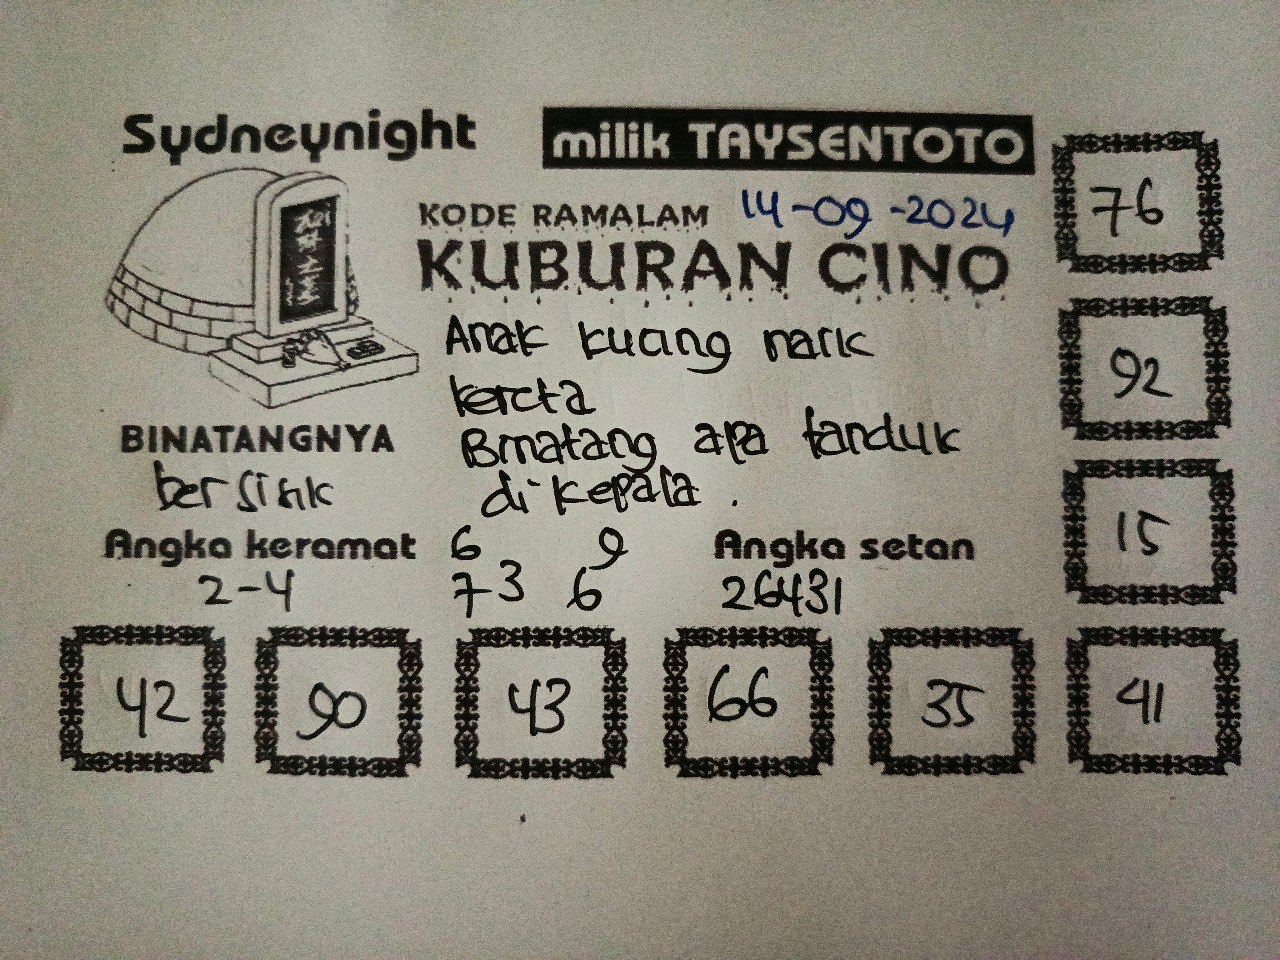 Sydneynight
milik TAYSENTOTO
KODE RAMALAM 14-09-2024
KUBURAN CINO
Anak kucing narik
kereta
Binatang apa tanduk
di kepala.
BINATANGNYA
bersisik
Angka keramat
2-4
6 9
73 6
Angka setan
26431
76
92
15
42 90 43 66 35 41